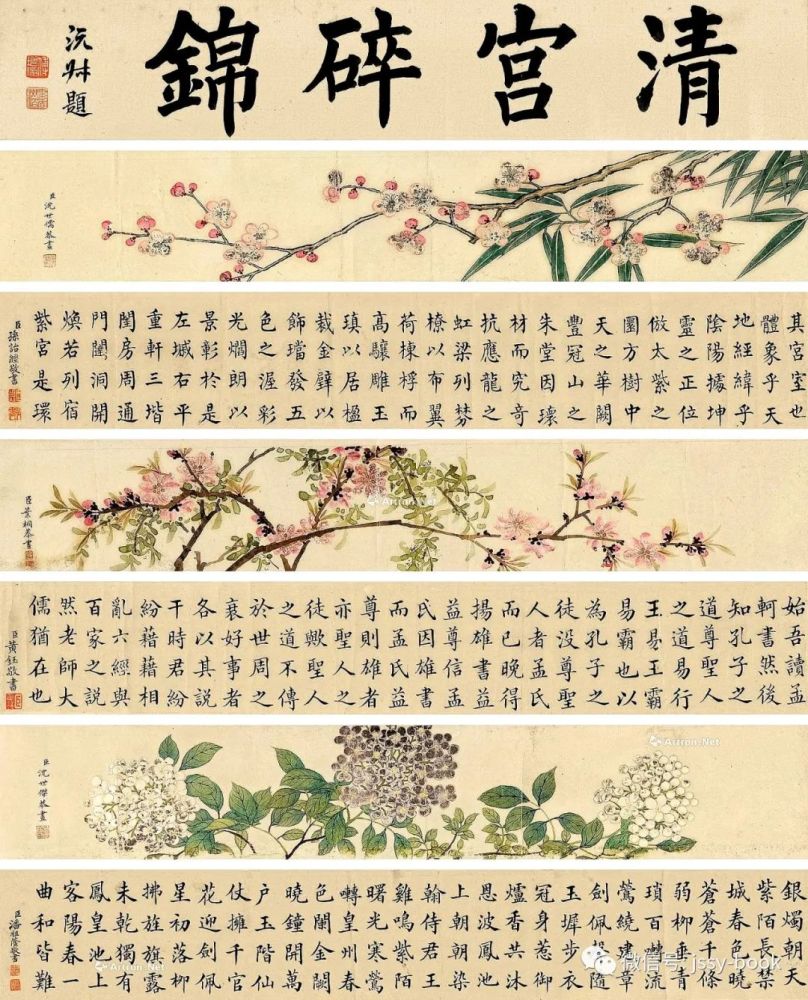 清宫碎錦
沅尗題
臣沈世儒恭畫
其宮室也
體象乎天
地經緯乎
陰陽據坤
靈之正位
倣太紫之
圜方樹中
天之華闕
豐冠山之
朱堂因瓌
材而究奇
抗應龍之
虹梁列棼
橑以布翼
荷棟桴而
高驤雕玉
瑱以居楹
裁金璧以
飾璫發五
色之渥彩
光爓朗以
景彰於是
左墄右平
重軒三堦
閨房周通
門闥洞開
煥若列宿
紫宮是環
臣孫詒經敬書
臣葉桐恭畫
Artron.Net
始吾讀孟
軻書然後
知孔子之
道尊聖人
之道易行
王易王霸
易霸也以
為孔子之
徒沒尊聖
人者孟氏
而已晚得
揚雄書益
益尊信孟
氏因雄書
而孟氏益
尊則雄者
亦聖人之
徒歟聖人
之道不傳
於世周之
衰好事者
各以其說
干時君紛
紛藉藉相
亂六經與
百家之說
然老師大
儒猶在也
臣黃鈺敬書
臣沈世傑恭畫
Artron.Net
銀燭朝天
紫陌長禁
城春色曉
蒼蒼千條
弱柳垂青
瑣百囀流
鶯繞建章
劍佩聲隨
玉墀步衣
冠身惹御
爐香共沐
恩波鳳池
上朝朝染
翰侍君王
雞鳴紫陌
曙光寒鶯
囀皇州春
色闌金闕
曉鐘開萬
戶玉階仙
仗擁千官
花迎劍佩
星初落柳
拂旌旗露
未乾獨有
鳳皇池上
客陽春一
曲和皆難
臣潘祖蔭敬書
微信号: jssy-book